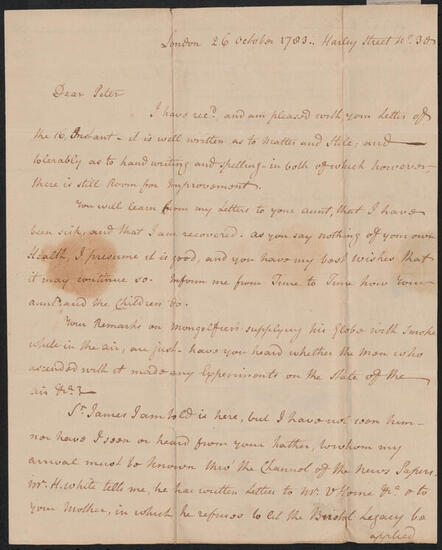 London 26 October 1783.. Harley Street No. 30
Dear Peter
I have recd. and am pleased with your Letter of
the 16. Instant - it is well written as to Matter and Stile; and
tolerably as to hand writing and spelling - in both of which however,
there is still Room for Improvement.
You will learn from my Letters to your Aunt, that I have
been sick, and that I am recovered. As you say nothing of your own
Health, I presume it is good, and you have my best wishes that
it may continue so. Inform me from Time to Time how your
aunt and the Children do.
Your Remarks on supplying his globe with Smoke
while in the air, are just - have you heard whether the Men who
ascended with it made any Experiments on the State of the
air &c.?
Sr. James I am told is here, but I have not seen him -
nor have I seen or heard from your Father, to whom my
arrival must be known thro' the Channel of the News Papers.
Mr. H. White tells me, he has written Letters to Mr. V Horne &c. & to
your Mother, in which he refuses to let the Bristol Legacy be
applied